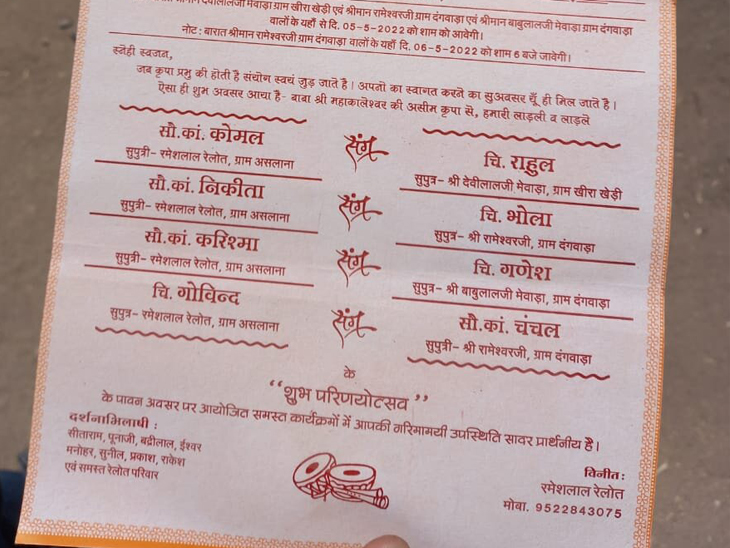 देवीलालजी मेवाड़ा ग्राम खीरा खेड़ी एवं श्रीमान रामेश्वरजी ग्राम दंगवाड़ा एवं श्रीमान बाबुलालजी मेवाड़ा ग्राम दंगवाड़ा
वालों के यहाँ से दि. 05-5-2022 को शाम को आवेगी।
नोट : बारात श्रीमान रामेश्वरजी ग्राम दंगवाड़ा वालों के यहाँ दि. 06-5-2022 को शाम 6 बजे जावेगी।
स्नेही स्वजन,
जब कृपा प्रभु की होती है संयोग स्वयं जुड़ जाते है। अपनो का स्वागत करने का सुअवसर यूँ ही मिल जाते है।
ऐसा ही शुभ अवसर आया है- बाबा श्री महाकालेश्वर की असीम कृपा से, हमारी लाड़ली व लाड़ले
सौ.कां. कोमल
सुपुत्री- रमेशलाल रेलोत, ग्राम असलाना
संग
चि. राहुल
सुपुत्र- श्री देवीलालजी मेवाड़ा, ग्राम खीरा खेड़ी
सौ.कां. निकीता
सुपुत्री- रमेशलाल रेलोत, ग्राम असलाना
संग
चि. भोला
सुपुत्र- श्री रामेश्वरजी, ग्राम दंगवाड़ा
सौ.कां. करिश्मा
सुपुत्री- रमेशलाल रेलोत, ग्राम असलाना
संग
चि. गणेश
सुपुत्र- श्री बाबुलालजी मेवाड़ा, ग्राम दंगवाड़ा
चि. गोविन्द
सुपुत्र- रमेशलाल रेलोत, ग्राम असलाना
संग
सौ.कां. चंचल
सुपुत्री- श्री रामेश्वरजी, ग्राम दंगवाड़ा
के
“शुभ परिणयोत्सव”
के पावन अवसर पर आयोजित समस्त कार्यक्रमों में आपकी गरिमामयी उपस्थिति सादर प्रार्थनीय है।
दर्शनाभिलाषी :
सीताराम, पूनाजी, बद्रीलाल, ईश्वर
मनोहर, सुनील, प्रकाश, राकेश
एवं समस्त रेलोत परिवार
विनीत :
रमेशलाल रेलोत
मोबा. 9522843075